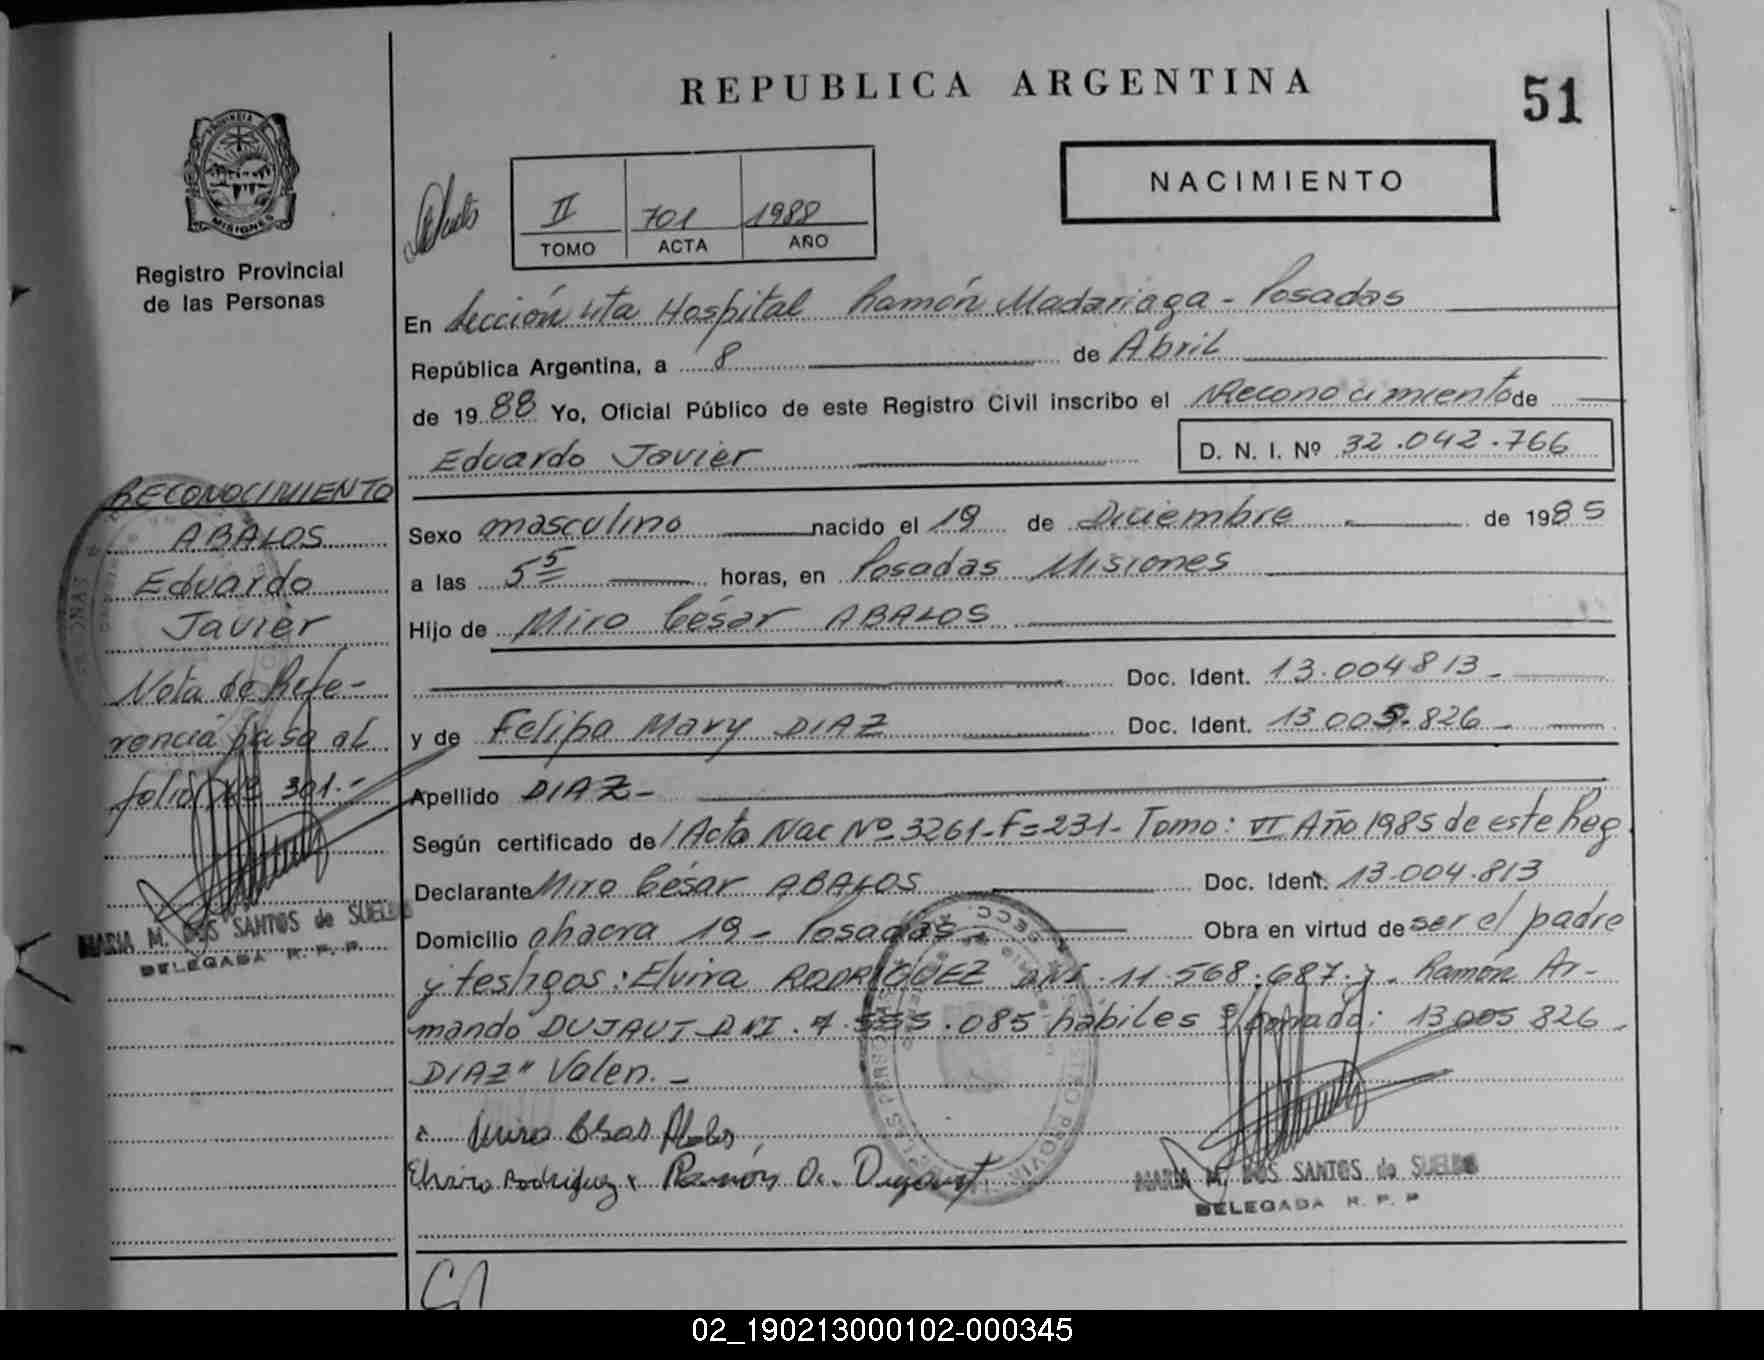 REPUBLICA ARGENTINA
51
PROVINCIA DE
MISIONES
Registro Provincial
de las Personas
II 701 1988
TOMO ACTA AÑO
NACIMIENTO
En Sección 4ta Hospital Ramón Madariaga - Posadas
República Argentina, a 8 de Abril
de 1988 Yo, Oficial Público de este Registro Civil inscribo el Reconocimiento de
Eduardo Javier D. N. I. Nº 32.042.766
Sexo masculino nacido el 19 de Diciembre de 1985
a las 5 5 horas, en Posadas Misiones
Hijo de Miro César ABALOS
Doc. Ident. 13.004813 -
y de Felipa Mary DIAZ Doc. Ident. 13.005.826 -
Apellido DIAZ -
Según certificado de Acta Nac Nº 3261 - F=231 - Tomo: VI Año 1985 de este Reg.
Declarante Miro César ABALOS Doc. Ident. 13.004.813
Domicilio chacra 19 - Posadas - Obra en virtud de ser el padre
y testigos: Elvira RODRIGUEZ DNI. 11.568.687. y. Ramón Ar-
mando DUJAUT DNI. 7.555.085 hábiles S/borrado: 13.005 826 -
DIAZ" Valen. -
Miro Cesar Abalos
Elvira Rodriguez x Ramón A. Dujaut
MARIA M. DOS SANTOS de SUELDO
DELEGADA R. P. P
RECONOCIMIENTO
ABALOS
Eduardo
Javier
Nota de Refe-
rencia pasa al
folio Nº 301.-
MARIA M. DOS SANTOS de SUELDO
DELEGADA R. P. P.
02_190213000102-000345